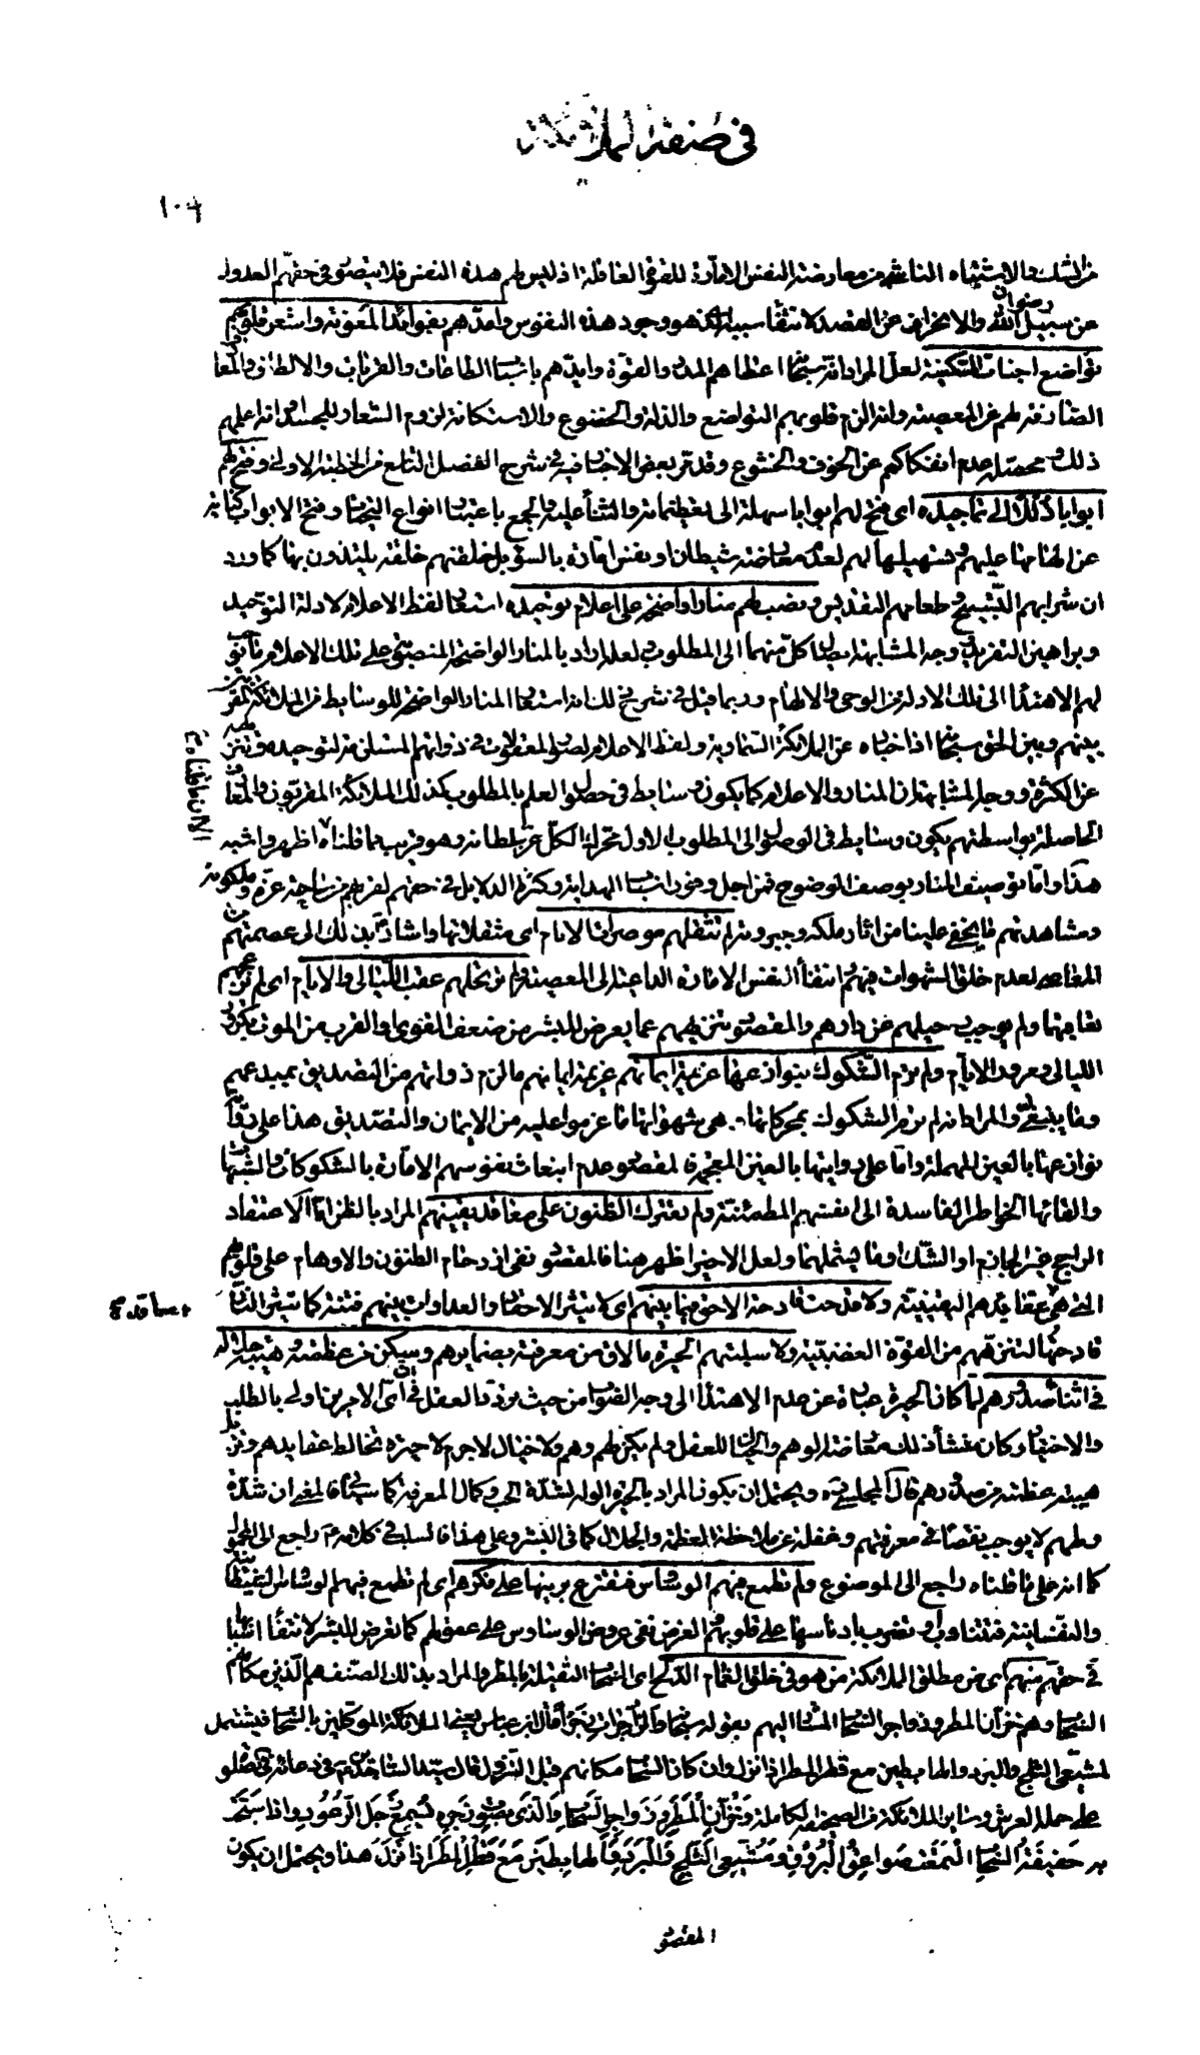 في صفة الملائكة
١٠٦
من الشك والاشتباه الناشي من معارضة النفس الامّارة للقوة العاقلة اذ ليس لهم هذه النفس فلا يتصوّر في حقهم العدول
عن سبيل رضوان الله والانحراف عن القصد لانتفاء سببه الذي هو وجود هذه النفوس وامدّهم بفوائد المعونة واشعر قلوبهم
تواضع اخبات السّكينة لعل المراد انه سبحانه اعطاهم المدد والقوة وايدهم باسباب الطاعات والقربات والالطاف والمعارف
الصارفة لهم عن المعصية وانه الزم قلوبهم التواضع والذلة والخضوع والاستكانة لزوم الشعار للجسد او انه اعلمهم
ذلك ومحصله عدم انفكاكهم عن الخوف والخشوع وقد مر بعض الاخبار فيه في شرح الفصل التاسع من الخطبة الاولى وفتح لهم
ابوابا ذللا الى تماجيده اى فتح لهم ابوابا سهلة الى تعظيماته والثناء عليه والجمع باعتبار انواع التمجيدات وفتح الابواب كناية
عن الهامها عليهم وتسهيلها لهم لعدم معارضة شيطان او نفس امّارة بالسوء بل خلقتهم خلقة يلتذون بها كما ورد
ان شرابهم التّسبيح وطعامهم التقديس ونصب لهم منارا واضحة على اعلام توحيده استعار لفظ الاعلام لادلة التوحيد
وبراهين التفريد ووجه المشابهة ايصال كلّ منهما الى المطلوب ولعله اراد بالمنار الواضحة المنصوبة على تلك الاعلام ما به يتوقع
لهم الاهتداء الى تلك الادلة من الوحى والالهام وربما قيل في شرح ذلك انه استعار المنار الواضحة للوسايط من الملائكة المقربين
بينهم وبين الحق سبحانه اذ اخباره عن الملائكة السّماوية ولفظ الاعلام لصور المعقولات في ذواتهم المستلزمة لتوحيده وتنزيهه
عن الكثرة ووجه المشابهة ان المنار والاعلام كما يكون وسايط في حصول العلم بالمطلوب كذلك الملائكة المقربون والمعارف
الحاصلة بواسطتهم يكون وسايط في الوصول الى المطلوب الاول محرك الكل عز سلطانه وهو قريب مما قلناه الا ان ما قلناه اظهر واشبه
هذا وامّا توصيف المنار بوصف الوضوح فمن اجل وفور اسباب الهداية وكثرة الدلايل في حقهم لقربهم من ساحة عزه وملكوته
ومشاهدتهم ما يخفى علينا من اثار ملكه وجبروته لم تثقلهم موصرات الاثام اى مثقلاتها واشار بذلك الى عصمتهم من
المعاصى لعدم خلق الشهوات فيهم وانتفاء النفس الامّارة الداعية الى المعصية ولم ترتحلهم عقب اللّيالى والايام اى لم تزعجهم
تعاقبهما ولم يوجب رحيلهم عن دارهم والمقصود تنزيههم عما يعرض للبشر من ضعف القوى او القرب من الموت بكرور
الليالى ومرور الايام ولم ترم الشكوك بنوازعها عزيمة ايمانهم عزيمة ايمانهم ما لزم ذواتهم من التصديق بمبدعهم
وما ينبغي له والمراد انه لم ترم الشكوك بمحركاتها وهى شهواتها ما عزموا عليه من الايمان والتصديق هذا على رواية
نوازعها بالعين المهملة وامّا على روايتها بالغين المعجمة فالمقصود عدم انبعاث نفوسهم الامّارة بالشكوك والشبهات
والقائها الخواطر الفاسدة الى انفسهم المطمئنة ولم تعترك الظنون على معاقد يقينهم المراد بالظن امّا الاعتقاد
الراجح غير الجازم او الشّك او ما يشملهما ولعل الاخير اظهر هنا فالمقصود نفى ازدحام الظنون والاوهام على قلوبهم
التي هى معاقد عقايدهم اليقينية ولا قدحت قادحة الاحن فيما بينهم اى لا يثير الاحقاد والعداوات بينهم فتنة كما تثير النار
قادحتها لتنزّههم من القوّة الغضبية ولا سلبتهم الحيرة ما لاق من معرفته بضمايرهم وسكن من عظمته وهيبة جلاله
في اثناء صدورهم لمّا كان الحيرة عبارة عن عدم الاهتداء الى وجه الصواب من حيث تردّد العقل في ان أىّ الامرين اولى بالطلب
والاختيار وكان منشأ ذلك معارضة الوهم والخيال للعقل ولم يكن لهم وهم ولا خيال لاجرم لا حيرة تخالط عقايدهم وتزيل
هيبة عظمته من صدورهم قال المجلسي ره ويحتمل ان يكون المراد بالحيرة الوله لشدّة الحب وكمال المعرفة كما سيأتي فالمعنى ان شدّة
ولههم لا يوجب نقصا في معرفتهم وغفلة عن ملاحظة العظمة والجلال كما في البشر وعلى هذا فالسلب في كلامه ع راجع الى المحمول
كما انه على ما قلناه راجع الى الموضوع ولم تطمع فيهم الوساوس فتقترع برينها على فكرهم اى لم تطمع فيهم الوساوس الشيطانية
والنفسانية فتتناوب وتضرب بادناسها على قلوبهم والغرض نفى عروض الوساوس على عقولهم كما تعرض للبشر لانتفاء اسبابها
في حقهم منهم اى من مطلق الملائكة من هو في خلق الغمام الدّلح اى السحاب الثقيلة بالمطر والمراد بذلك الصّنف هم الّذين مكانهم
السّحاب وهم خزان المطر وزواجر السحاب المشار اليهم بقوله سبحانه والزّاجرات زجرا قال ابن عباس يعني الملائكة الموكلين بالسّحاب فيشتمل
لمشيّعى الثلج والبرد والهابطين مع قطر المطر اذا نزل وان كان السّحاب مكانهم قبل النزول قال سيّد السّاجدين ع في دعائه في الصّلوة
على حملة العرش وساير الملائكة من الصحيفة الكاملة وَخُزّانِ الْمَطَرِ وَزَواجِرِ السَّحابِ وَالَّذي بِصَوْتِ زَجْرِهِ يُسْمَعُ زَجَلُ الرُّعُودِ وَاِذا سَبَحَتْ
بِهِ حَفيفَةُ السَّحابِ الْتَمَعَتْ صَواعِقُ الْبُرُوقِ وَمُشَيِّعِى الثَّلْجِ وَالْبَرَدِ وَالْهابِطينَ مَعَ قَطْرِ الْمَطَرِ اِذا نَزَلَ هذا ويحتمل ان يكون
المقصود